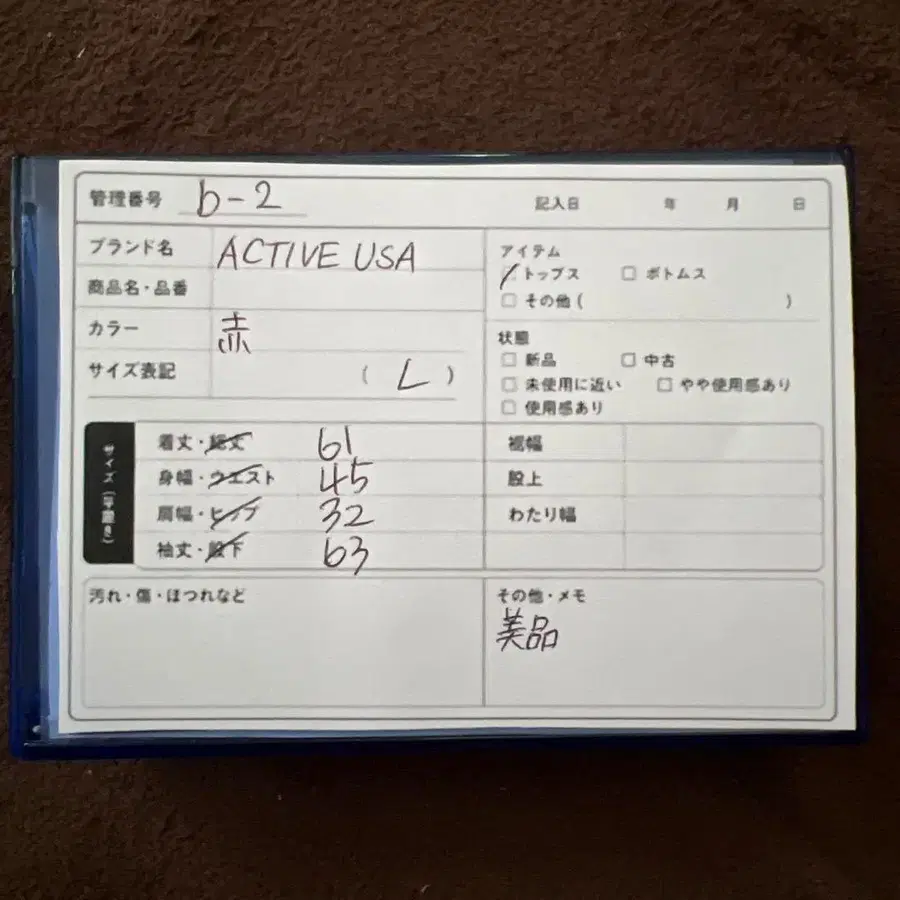 管理番号 b-2 記入日 年 月 日
ブランド名 ACTIVE USA
商品名・品番
カラー 赤
サイズ表記 ( L )
アイテム
トップス □ ボトムス
□ その他 ( )
状態
□ 新品 □ 中古
□ 未使用に近い □ やや使用感あり
□ 使用感あり
サイズ(平置き)
着丈・総丈 61
身幅・ウエスト 45
肩幅・ヒップ 32
袖丈・股下 63
裾幅
股上
わたり幅
汚れ・傷・ほつれなど
その他・メモ
美品